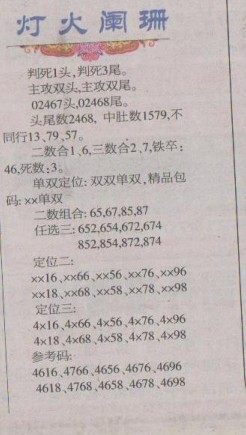 灯火阑珊
判死1头,判死3尾。
主攻双头,主攻双尾。
02467头,02468尾。
头尾数2468, 中肚数1579,不
同行13、79、57。
二数合1、6,三数合2、7,铁卒:
46,死数:3。
单双定位: 双双单双,精品包
码: xx单双
二数组合: 65,67,85,87
任选三: 652,654,672,674
852,854,872,874
定位二:
xx16、xx66、xx56、xx76、xx96
xx18、xx68、xx58、xx78、xx98
定位三:
4x16、4x66、4x56、4x76、4x96
4x18、4x68、4x58、4x78、4x98
参考码:
4616、4766、4656、4676、4696
4618、4768、4658、4678、4698